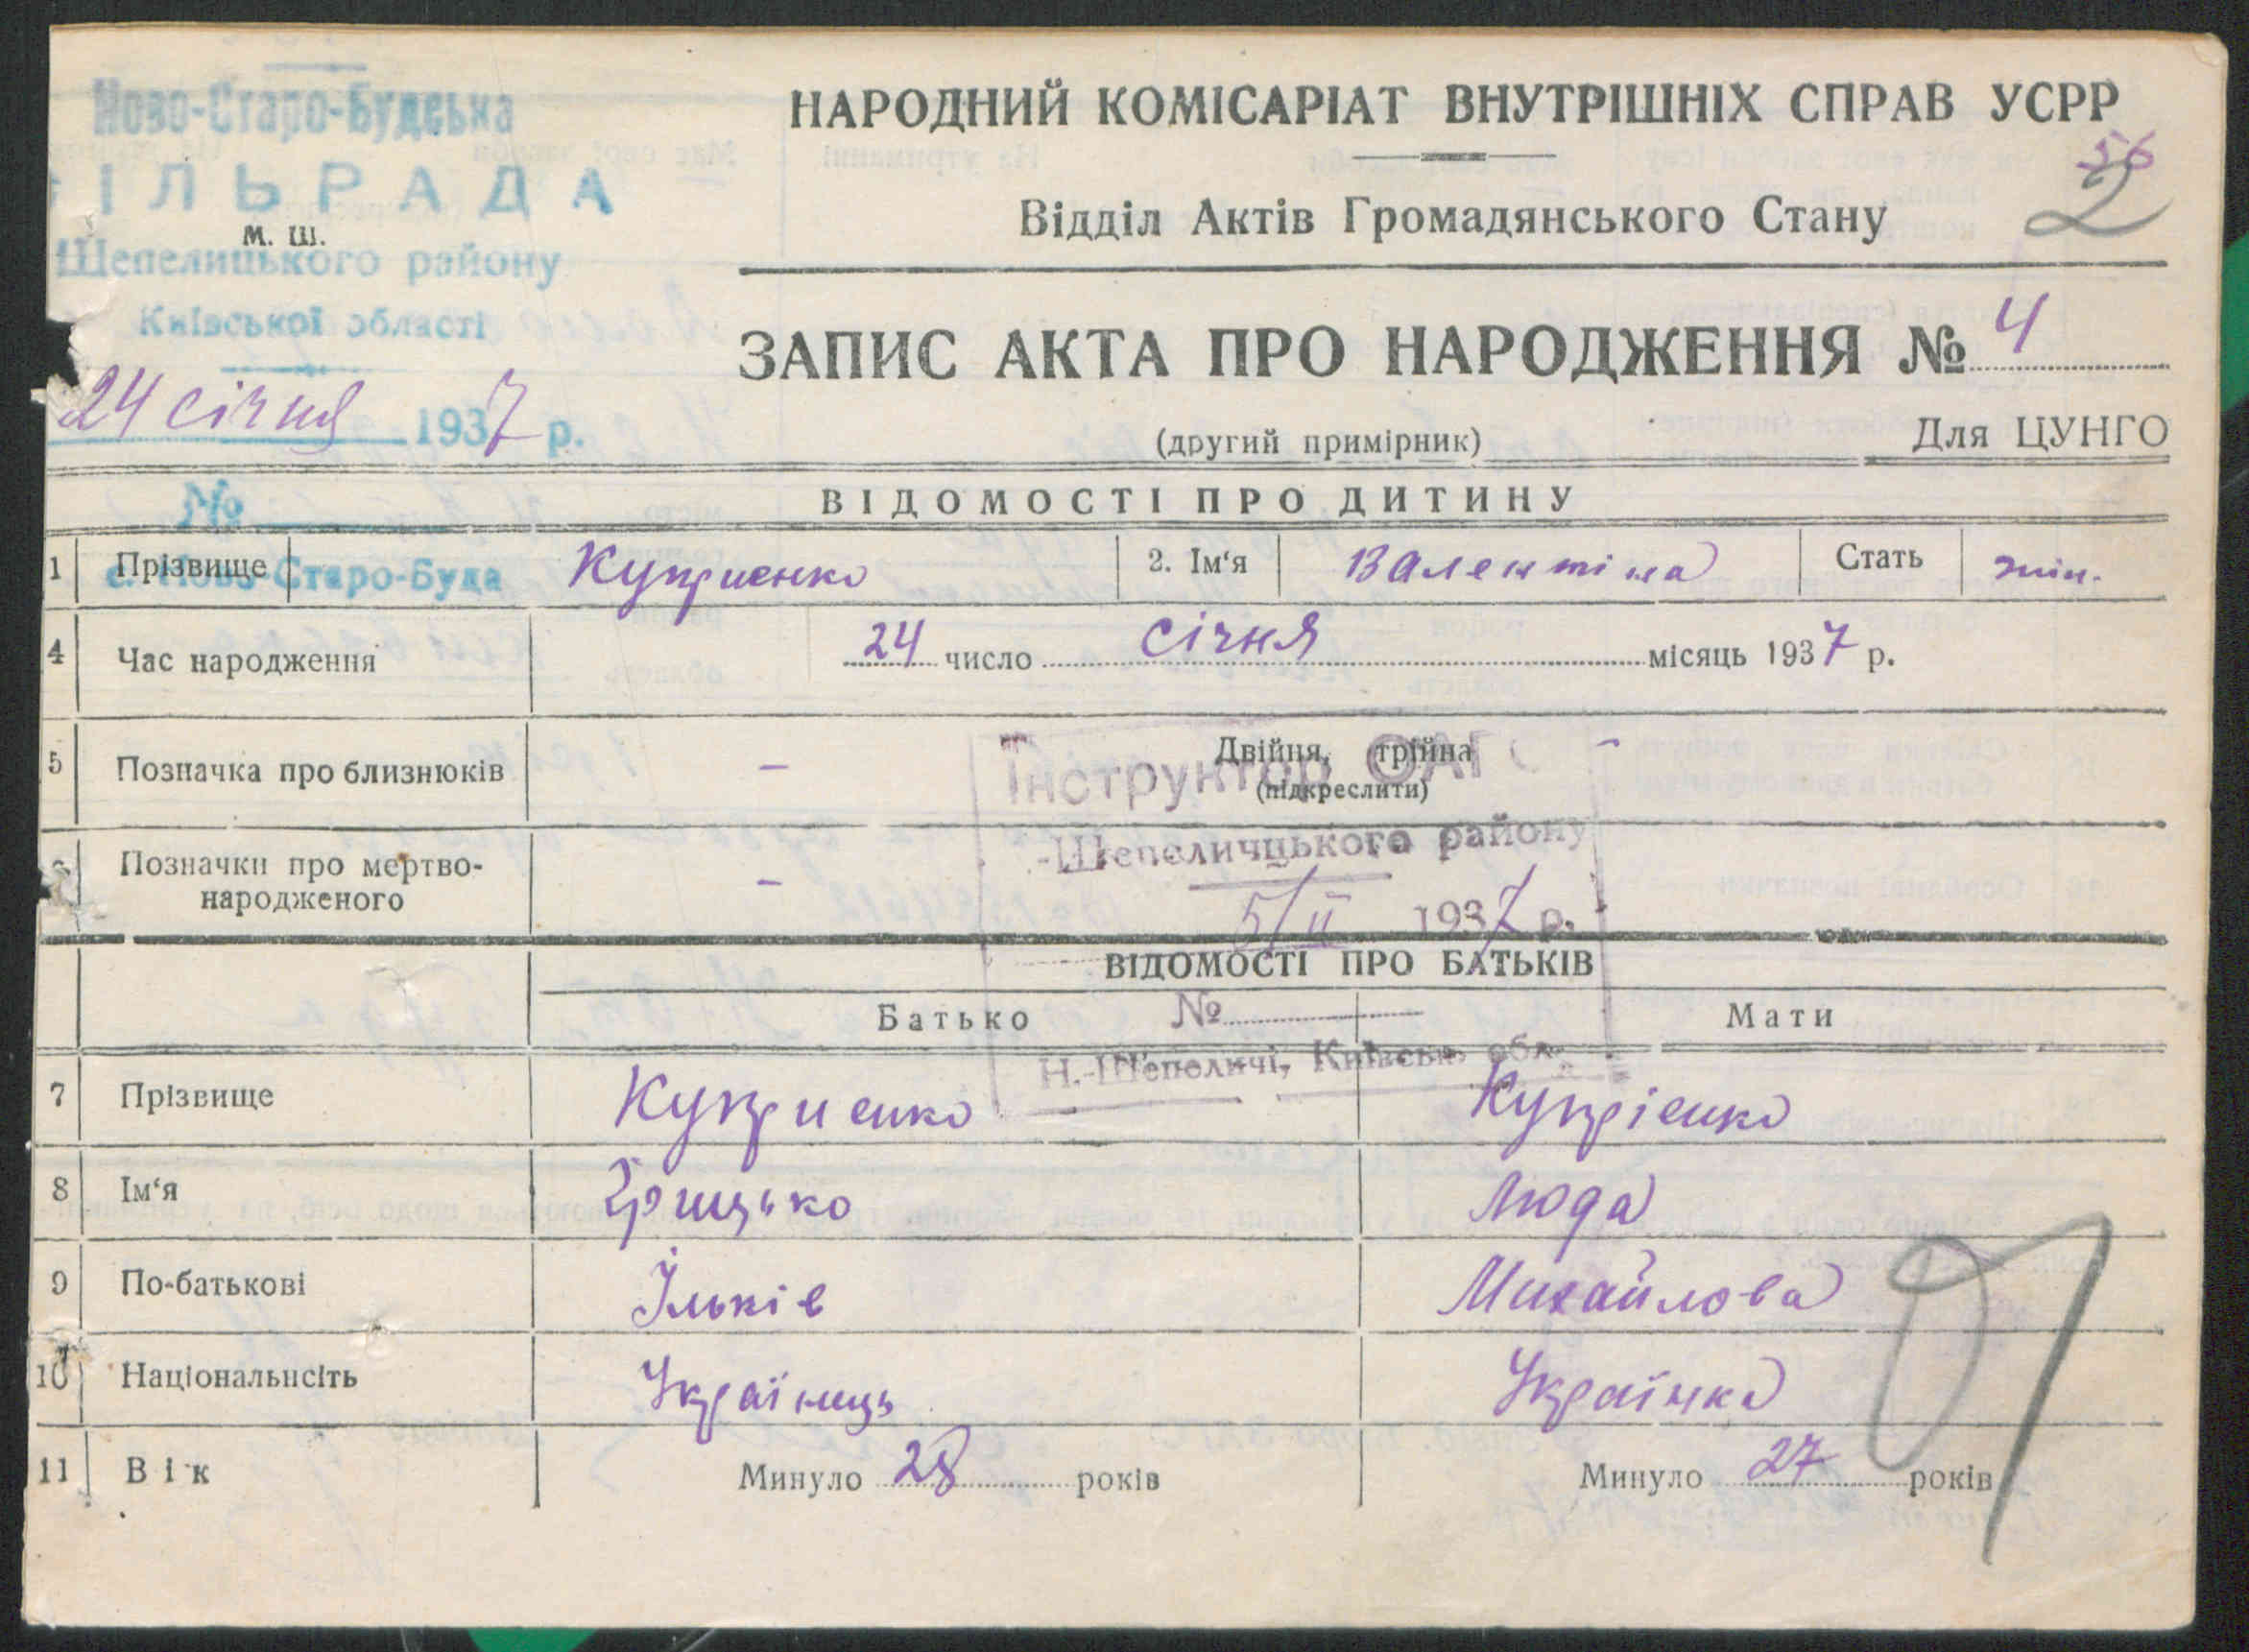 Ново-Старо-Будська
СІЛЬРАДА
м. ш.
Шепелицького району
Київської області
24 січня 1937 р.
№
с. Ново-Старо-Буда
НАРОДНИЙ КОМІСАРІАТ ВНУТРІШНІХ СПРАВ УСРР
56
2
Відділ Актів Громадянського Стану
ЗАПИС АКТА ПРО НАРОДЖЕННЯ № 4
(другий примірник)
Для ЦУНГО
ВІДОМОСТІ ПРО ДИТИНУ
1 Прізвище Куприенко 2. Ім‘я Валентіна Стать жін.
4 Час народження 24 число січня місяць 1937 р.
5 Позначка про близнюків - Двійня, трійна -
(підкреслити)
Інструктор ОАГС
-Шепеличцького району
5/II 1937 р.
№
Н.-Шепеличі, Київськ. обл.
6 Позначки про мертво-
народженого -
ВІДОМОСТІ ПРО БАТЬКІВ
Батько Мати
7 Прізвище Куприенко Купріенко
8 Ім‘я Грицько Люда
9 По-батькові Ільків Михайлова
10 Національнсіть Українць Українка
11 Вік Минуло 28 років Минуло 27 років